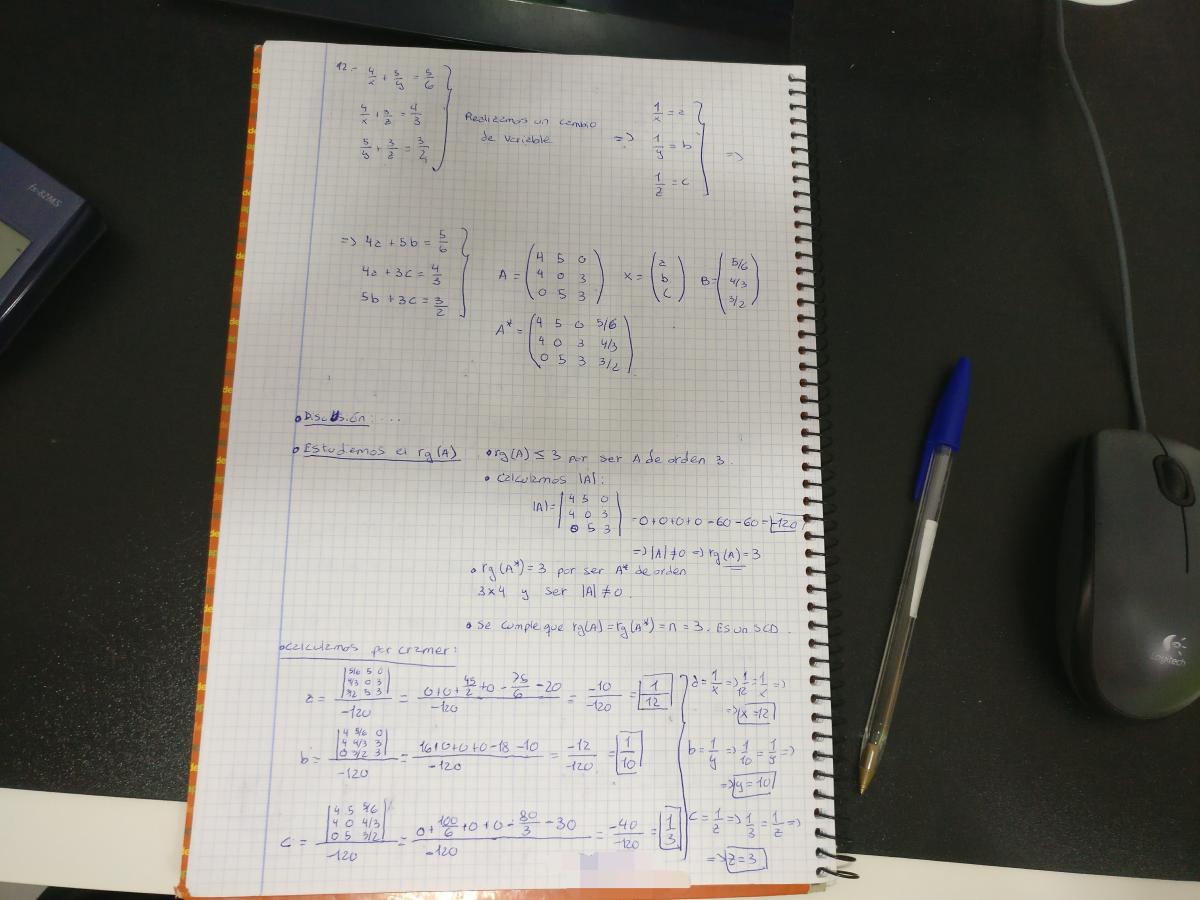 12.- 4/x + 5/y = 5/6
4/x + 3/z = 4/3
5/y + 3/z = 3/2
Realizamos un cambio
de variable
=>
1/x = a
1/y = b
1/z = c
=>
=> 4a + 5b = 5/6
4a + 3c = 4/3
5b + 3c = 3/2
A = (4 5 0
4 0 3
0 5 3)
X = (a
b
c)
B = (5/6
4/3
3/2)
A* = (4 5 0 5/6
4 0 3 4/3
0 5 3 3/2)
• Discusión: ...
• Estudiemos el rg(A)
• rg(A) ≤ 3 por ser A de orden 3.
• Calculamos |A|:
|A| = |4 5 0
4 0 3
0 5 3| = 0+0+0+0-60-60 = -120
=> |A| ≠ 0 => rg(A) = 3
• rg(A*) = 3 por ser A* de orden
3x4 y ser |A| ≠ 0.
• Se cumple que rg(A) = rg(A*) = n = 3. Es un SCD.
• Calculamos por cramer:
a = |5/6 5 0
4/3 0 3
3/2 5 3| / -120 = (0+0+45/2+0-75/6-20) / -120 = -10/-120 = 1/12
b = |4 5/6 0
4 4/3 3
0 3/2 3| / -120 = (16+0+0+0-18-10) / -120 = -12/-120 = 1/10
c = |4 5 5/6
4 0 4/3
0 5 3/2| / -120 = (0+100/6+0+0-80/3-30) / -120 = -40/-120 = 1/3
a = 1/x => 1/12 = 1/x =>
=> x = 12
b = 1/y => 1/10 = 1/y =>
=> y = 10
c = 1/z => 1/3 = 1/z =>
=> z = 3
fx-82MS
Logitech